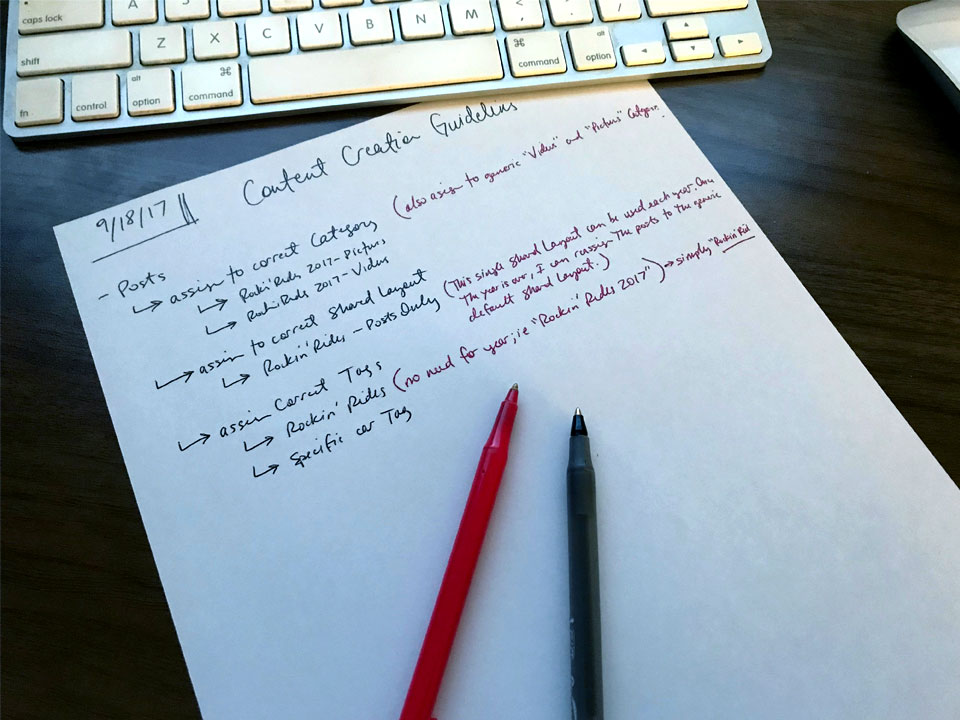 caps lock
A
shift
Z X C V B N M < , > . ? /
fn
control
alt option
⌘ command
⌘ command
alt option
Content Creation Guidelines
9/18/17
- Posts
assign to correct Category (also assign to generic "Videos" and "Pictures" Category.
Rockin' Rides 2017 - Pictures
Rockin' Rides 2017 - Videos
assign to correct Shared Layout
Rockin' Rides - Posts Only (This single Shared Layout can be used each year. Once
the year is over, I can reassign the posts to the generic
default Shared Layout.)
assign Correct Tags
Rockin' Rides (no need for year; ie "Rockin' Rides 2017") → simply "Rockin' Rid
Specific car Tag